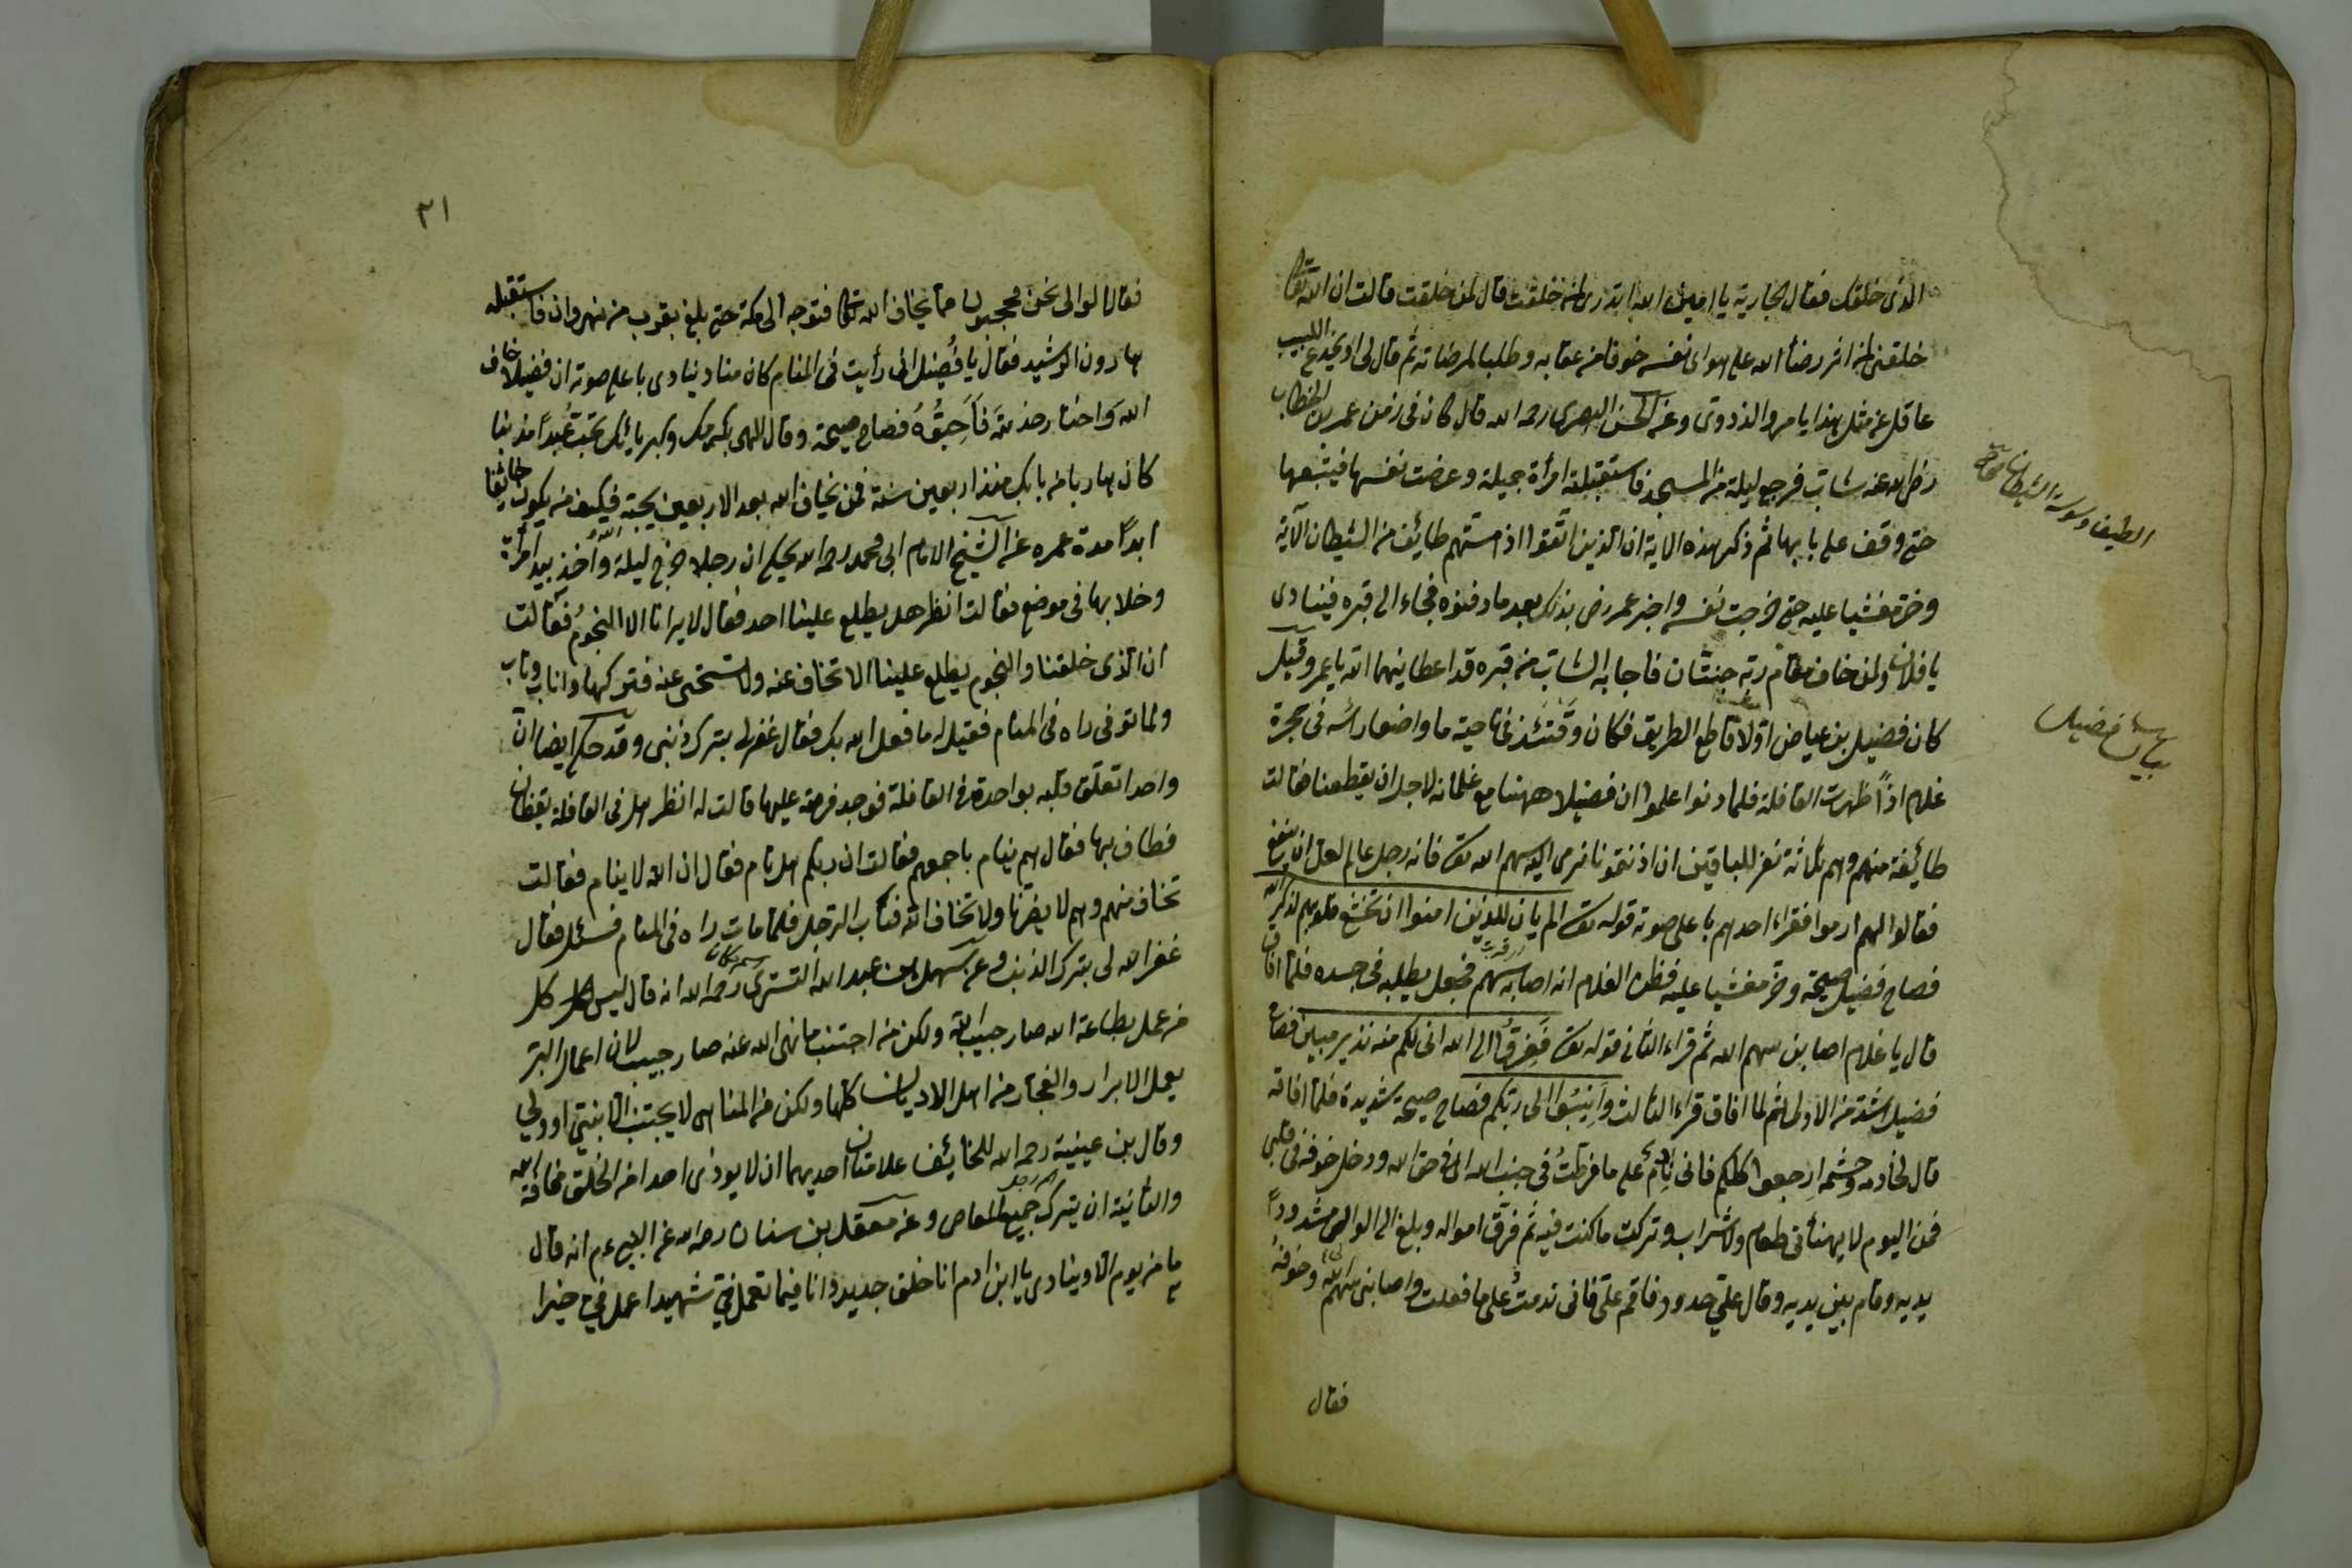 الذى خلقك فقال لجارية يا امين الله اتدرى لمن خلقت قال لمن خلقت قالت ان الله تعالى
خلقنى لمن اثر رضأ الله على هواى نفسه خوفا من عقابه وطلبا لمرضاته ثم قال لى اويخدع اللبيب
عاقل عن مثل هذا يا مرو الذدوى وعن الحسن البصرى رحمه الله قال كان فى زمن عمر بن الخطاب
رضى الله عنه شابّ فرجع ليلة من المسجد فاستقبلته امرأة جميلة وعرضت نفسها فيتبعها
حتى وقف على بابها ثم ذكر هذه الاية ان الذين اتّقوا اذا مسّهم طائف من الشيطان الآية
وخرّ مغشيا عليه حتى خرجت نفسه واخبر عمر رض بذلك بعد ما دفنوه فجاء الى قبره فينادى
يا فلان ولمن خاف مقام ربّه جنتان فاجابه الشاب من قبره قد اعطانيهما الله يا عمر وقيل
كان فضيل بن عياض اوّلا قاطع الطريق فكان وقتئذ فى ناحية ما واضعا راسه فى حجرة
غلام اذاً ظهرت القافلة فلما دنوا علموا ان فضيلا ههنا مع غلمانه لاجل ان يقطعنا فقالت
طائفة منهم وهم ثلاثة نفر للباقين ان اذنتمونا نرمى اليه سهم الله تع فانه رجل عالم لعل ان ينفع
فقالوا لهم ارموا فقراء احدهم باعلى صوته قوله تع الم يان للذين امنوا ان تخشع قلوبهم لذكر الله
فصاح فضيل صيحة وخرّ مغشيا عليه فظن الغلام انه اصابه سهم فجعل يطلبه فى جسده فلما افاق
قال يا غلام اصابنى سهم الله ثم قراء الثانى قوله تع ففروا الى الله انى لكم منه نذير مبين فصاح
فضيل اشد من الاولى ثم لما افاق قراء الثالث وانيبوا الى ربّكم فصاح صيحة شديدة فلما افاقه
قال لخادمه وحشمه ارجعوا كلكم فانى نادم على ما فرطت فى جنب الله اى فى حق الله ودخل خوفه فى قلبى
فمن اليوم لا يهنأنى طعام ولا شراب وتركت ما كنت فيه ثم فرّق امواله وبلغ الى الوالى مشدوداً
يديه وقام بين يديه وقال علىّ حدود فاقم علىّ فانى ندمت على ما فعلت واصابنى سهم الله وخوفه
فقال
بيان فضيل
٢١
فقال الوالى نحن محجبون عما يخاف الله تعالى فتوجه الى مكة حتى بلغ بقرب من نهروان فاستقبله
هارون الرشيد فقال يا فضيل انى رأيت فى المنام كان مناد ينادى باعلى صوته ان فضيلا خاف
الله واختار خدمته فاحبّوه فصاح صيحة وقال الهى بكرمك وكبريائك تحب عبداً مذنبا
كان هاربا من بابك منذ اربعين سنة فمن يخاف الله بعد الاربعين يحبه فكيف من يكون خائفا
ابداً مدة عمره عن الشيخ الامام ابى محمد رحمه الله يحكى ان رجلا خرج ليلة واخذ بيد امرأة
وخلا بها فى موضع فقالت انظر هل يطلع علينا احد فقال لا يرانا الا النجوم فقالت
ان الذى خلقنا والنجوم يطلع علينا الا تخاف عنه ولا تستحى عنه فتركها واناب وتاب
ولما توفى راه فى المنام فقيل له ما فعل الله بك فقال غفر لى بترك ذنبى وقد حكى ايضا انّ
واحدا تعلّق قلبه بواحدة فى القافلة فوجد فرصة عليها قالت له انظر هل فى القافلة يقظان
فطاف بها فقال هم نيام باجمعهم فقالت ان ربكم هل نام فقال ان الله لا ينام فقالت
تخاف منهم وهم لا يضرنا ولا تخاف الله فتاب الرجل فلما مات راه فى المنام فسئل فقال
غفر الله لى بترك الذنب وعن سهل بن عبد الله التسترى رحمه الله انه قال ليس كل
من عمل بطاعة الله صار حبيب الله ولكن من اجتنب ما نهى الله عنه صار حبيبه لان اعمال البر
يعمل الابرار والفجار من اهل الاديان كلها ولكن من المناهى لا يجتنب الا نبى او ولى
وقال بن عيينة رحمه الله للخائف علامتان احديهما ان لا يوذى احدا من الخلق مخافة الله
والثانية ان يترك جميع المعاصى وعن معقل بن سنان رحمه الله عن النبى عم انه قال
ما من يوم الا وينادى يا ابن ادم انا خلق جديد وانا فيما تعمل فىّ شهيد اعمل فىّ خيرا